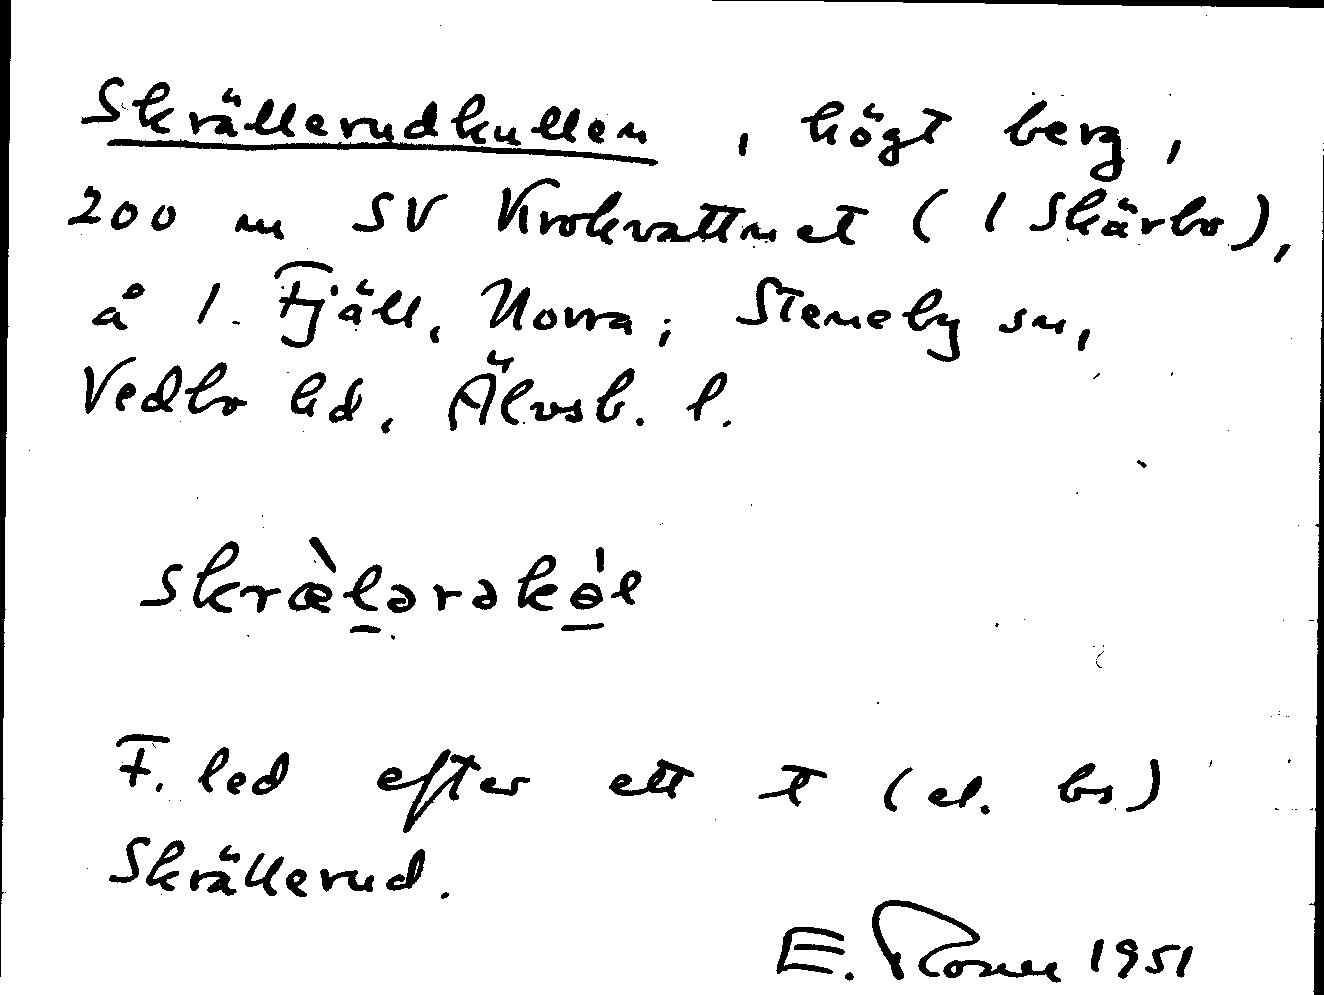 Skrällerudkullen, högt berg,
200 m SV Krokvattnet (1 Skärbo),
å 1. Fjäll, Norra; Steneby sn,
Vedbo hd, Älvsb. l.
skræ̀lərəkɵ́l
F. led efter ett t (el. bs)
Skrällerud.
E. 1951